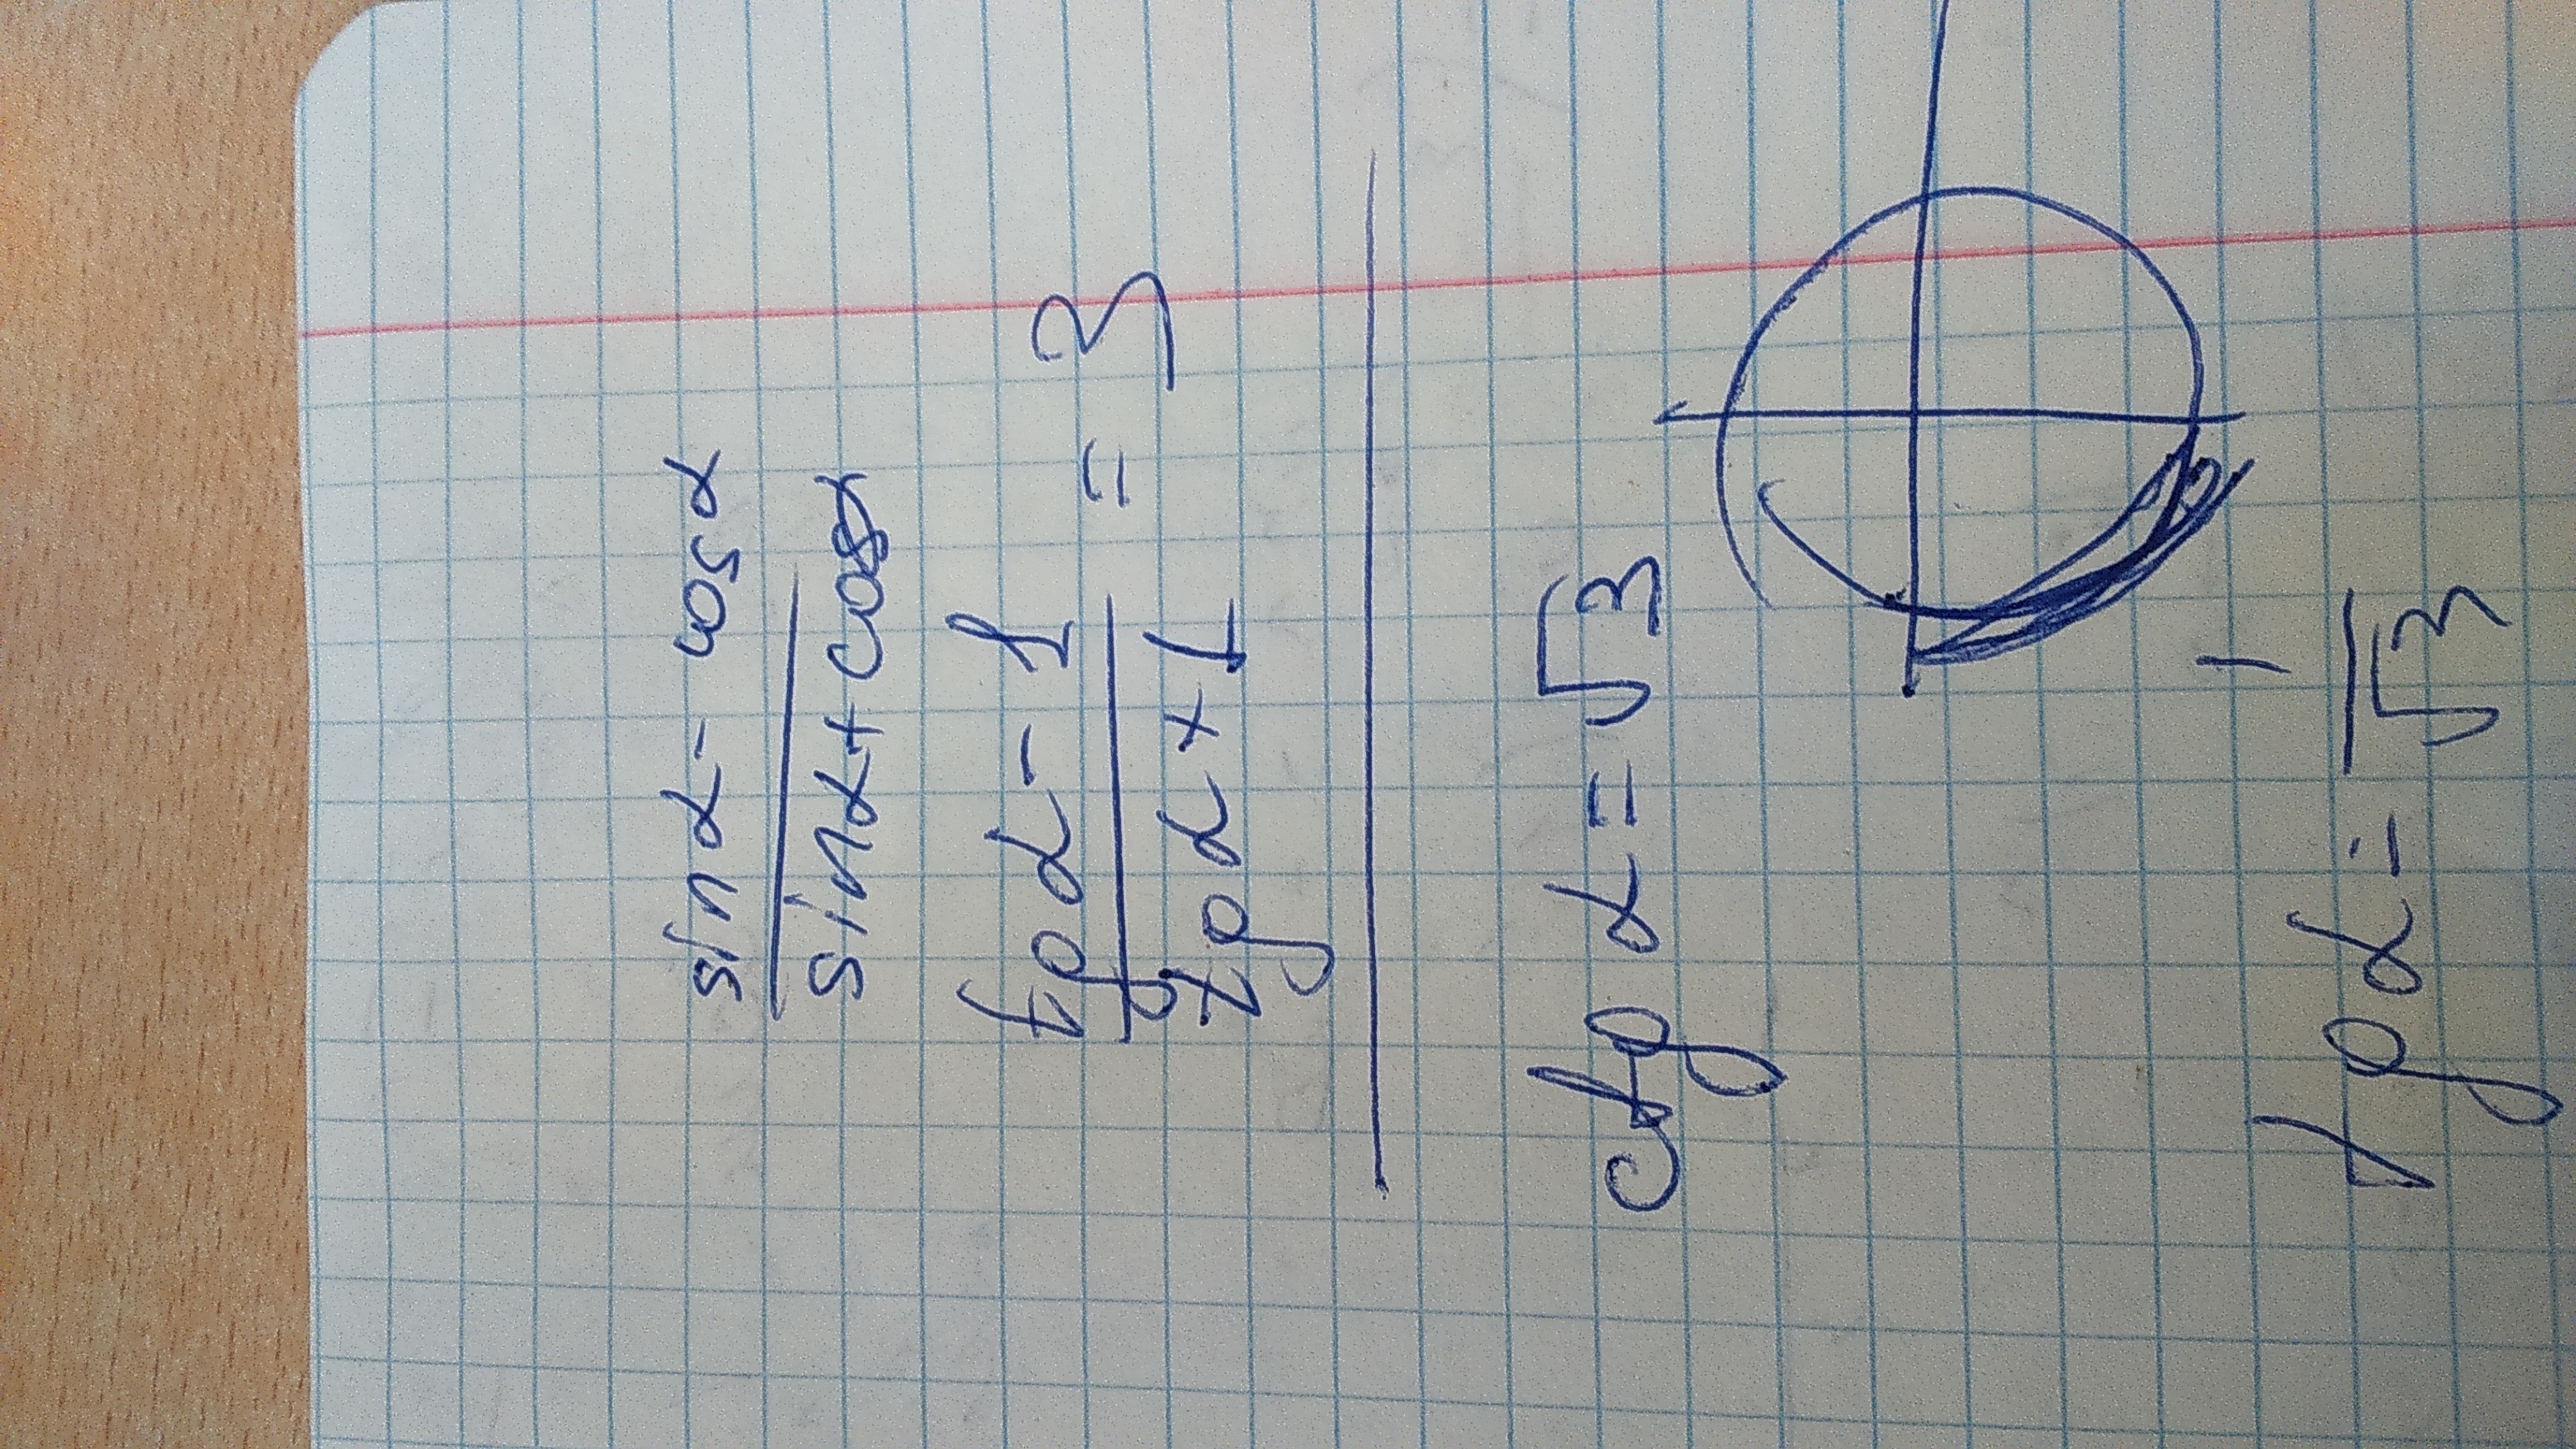 sin α - cos α
sin α + cos α
tg α - 1
tg α + 1
= 3
ctg α = √3
tg α = 1/√3